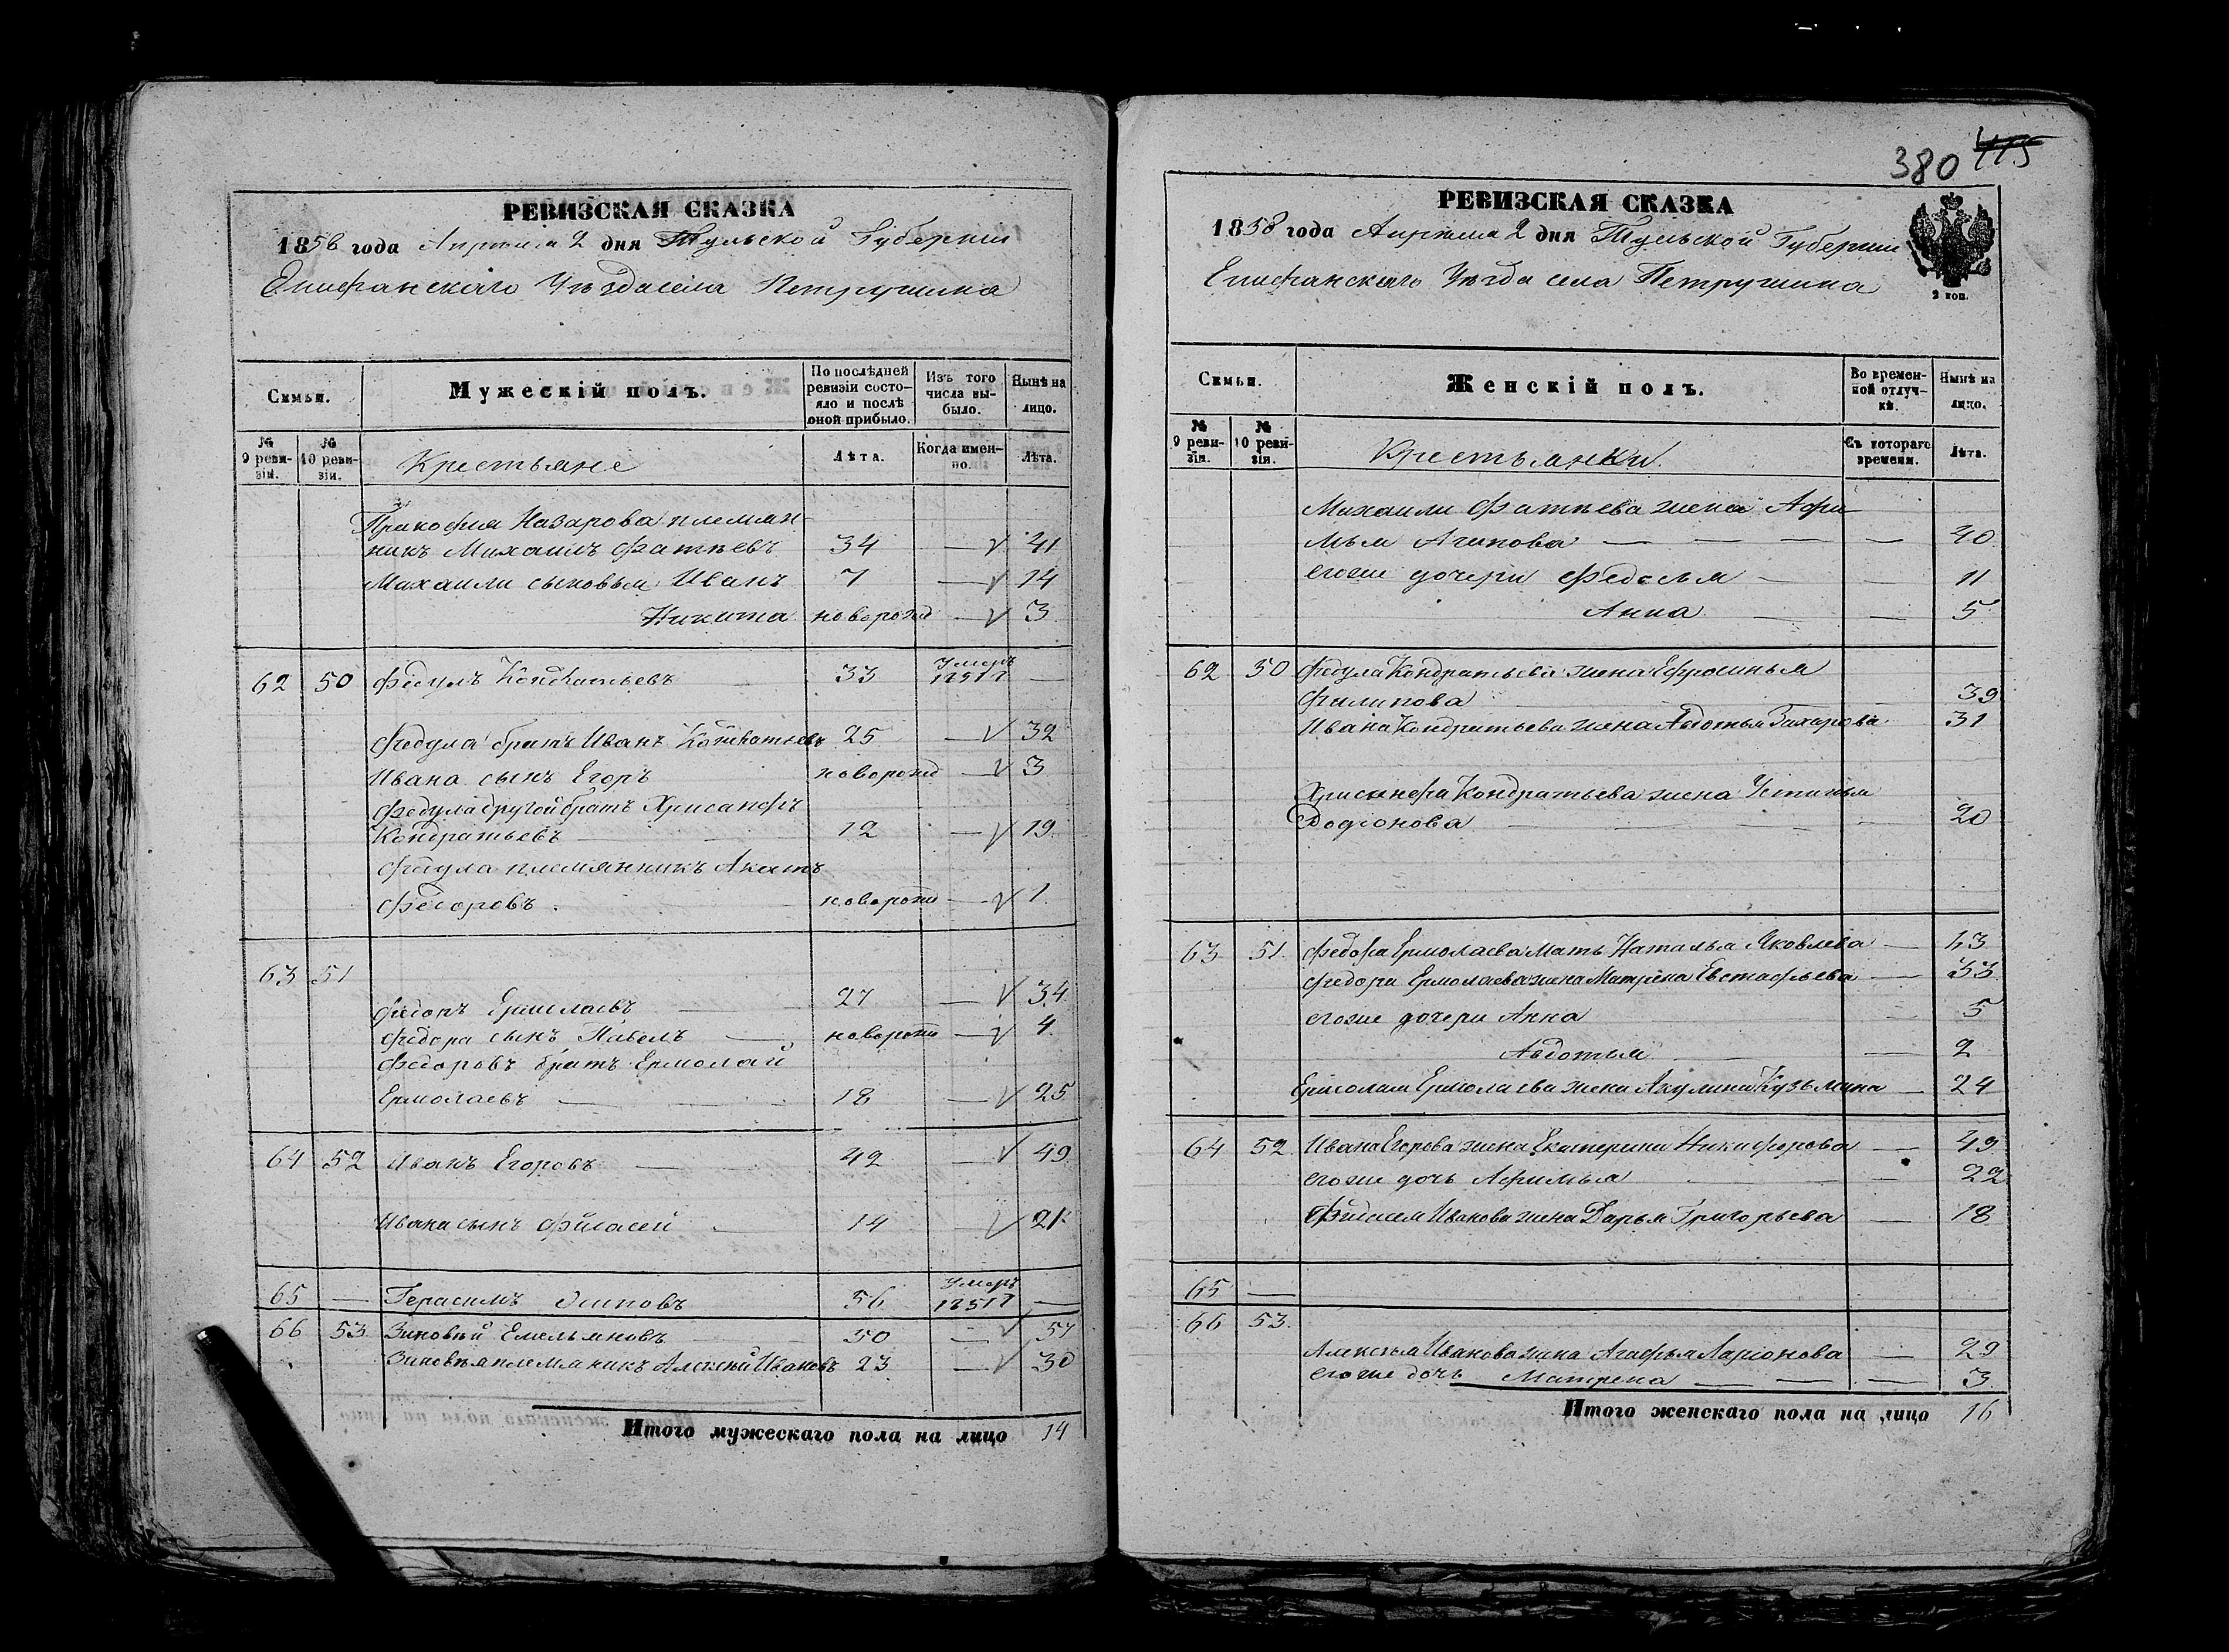 380 415
РЕВИЗСКАЯ СКАЗКА
1858 года Апрѣля 2 дня Тульской Губерніи
Епифанскаго Уѣзда села Петрушина
Семьи. Мужескій полъ. По послѣдней ревизіи состояло и послѣ оной прибыло. Изъ того числа выбыло. Нынѣ на лицо.
№ 9 ревизіи. № 10 ревизіи. Крестьяне Лѣта. Когда именно. Лѣта.
Прокофія Назарова племян-
никъ Михаилъ Фатѣевъ 34 — 41
Михаилы сыновья Иванъ 7 — 14
Никита новорожд — 3
62 50 Федулъ Кондратьевъ 33 Умеръ 1851 г —
Федула братъ Иванъ Кондратьевъ 25 — 32
Ивана сынъ Егоръ новорожд — 3
Федула другой братъ Хрисанфъ
Кондратьевъ 12 — 19
Федула племянникъ
Федоровъ новорожд — 1
63 51
Федоръ Ермолаевъ 27 — 34
Федора сынъ Павелъ новорож — 4
Федоровъ братъ Ермолай
Ермолаевъ — 18 — 25
64 52 Иванъ Егоровъ — 42 — 49
Ивана сынъ Филасей 14 — 21
65 — Герасимъ Осиповъ 56 Умеръ 1851 г —
66 53 Зиновѣй Емельяновъ 50 — 57
Зиновѣя племяникъ Алексѣй Ивановъ 23 — 30
Итого мужескаго пола на лицо 14
РЕВИЗСКАЯ СКАЗКА
1858 года Апрѣля 2 дня Тульской Губерніи
Епифанскаго Уѣзда села Петрушина
2 коп.
Семьи. Женскій полъ. Во временной отлучкѣ. Нынѣ на лицо.
№ 9 ревизіи. № 10 ревизіи. Крестьянки. Съ котораго времени. Лѣта.
Михаилы Фатѣева жена Афи-
мья Агипова — — — — 40
егоже дочери Федосья — — 11
Анна — — 5
62 50 Федула Кондратьева жена Ефросинья
Филипова 39
Ивана Кондратьева жена Авдотья Захарова 31
Хрисанфа Кондратьева жена Устинья
Родіонова 20
63 51 Федора Ермолаева мать Наталья Яковлева — 63
Федора Ермолаева жена Матрена Евстафьева — 33
егоже дочери Анна 5
Авдотья — 2
Ермолая Ермолаева жена Акулина Кузьмина — 24
64 52 Ивана Егорова жена Екатерина Никифорова — 49
егоже дочь Афимья — 22
Филасея Иванова жена Дарья Григорьева — 18
65 —
66 53
Алексѣя Иванова жена Агафья Ларіонова — 29
егоже дочь Матрена — — — 3
Итого женскаго пола на лицо 16